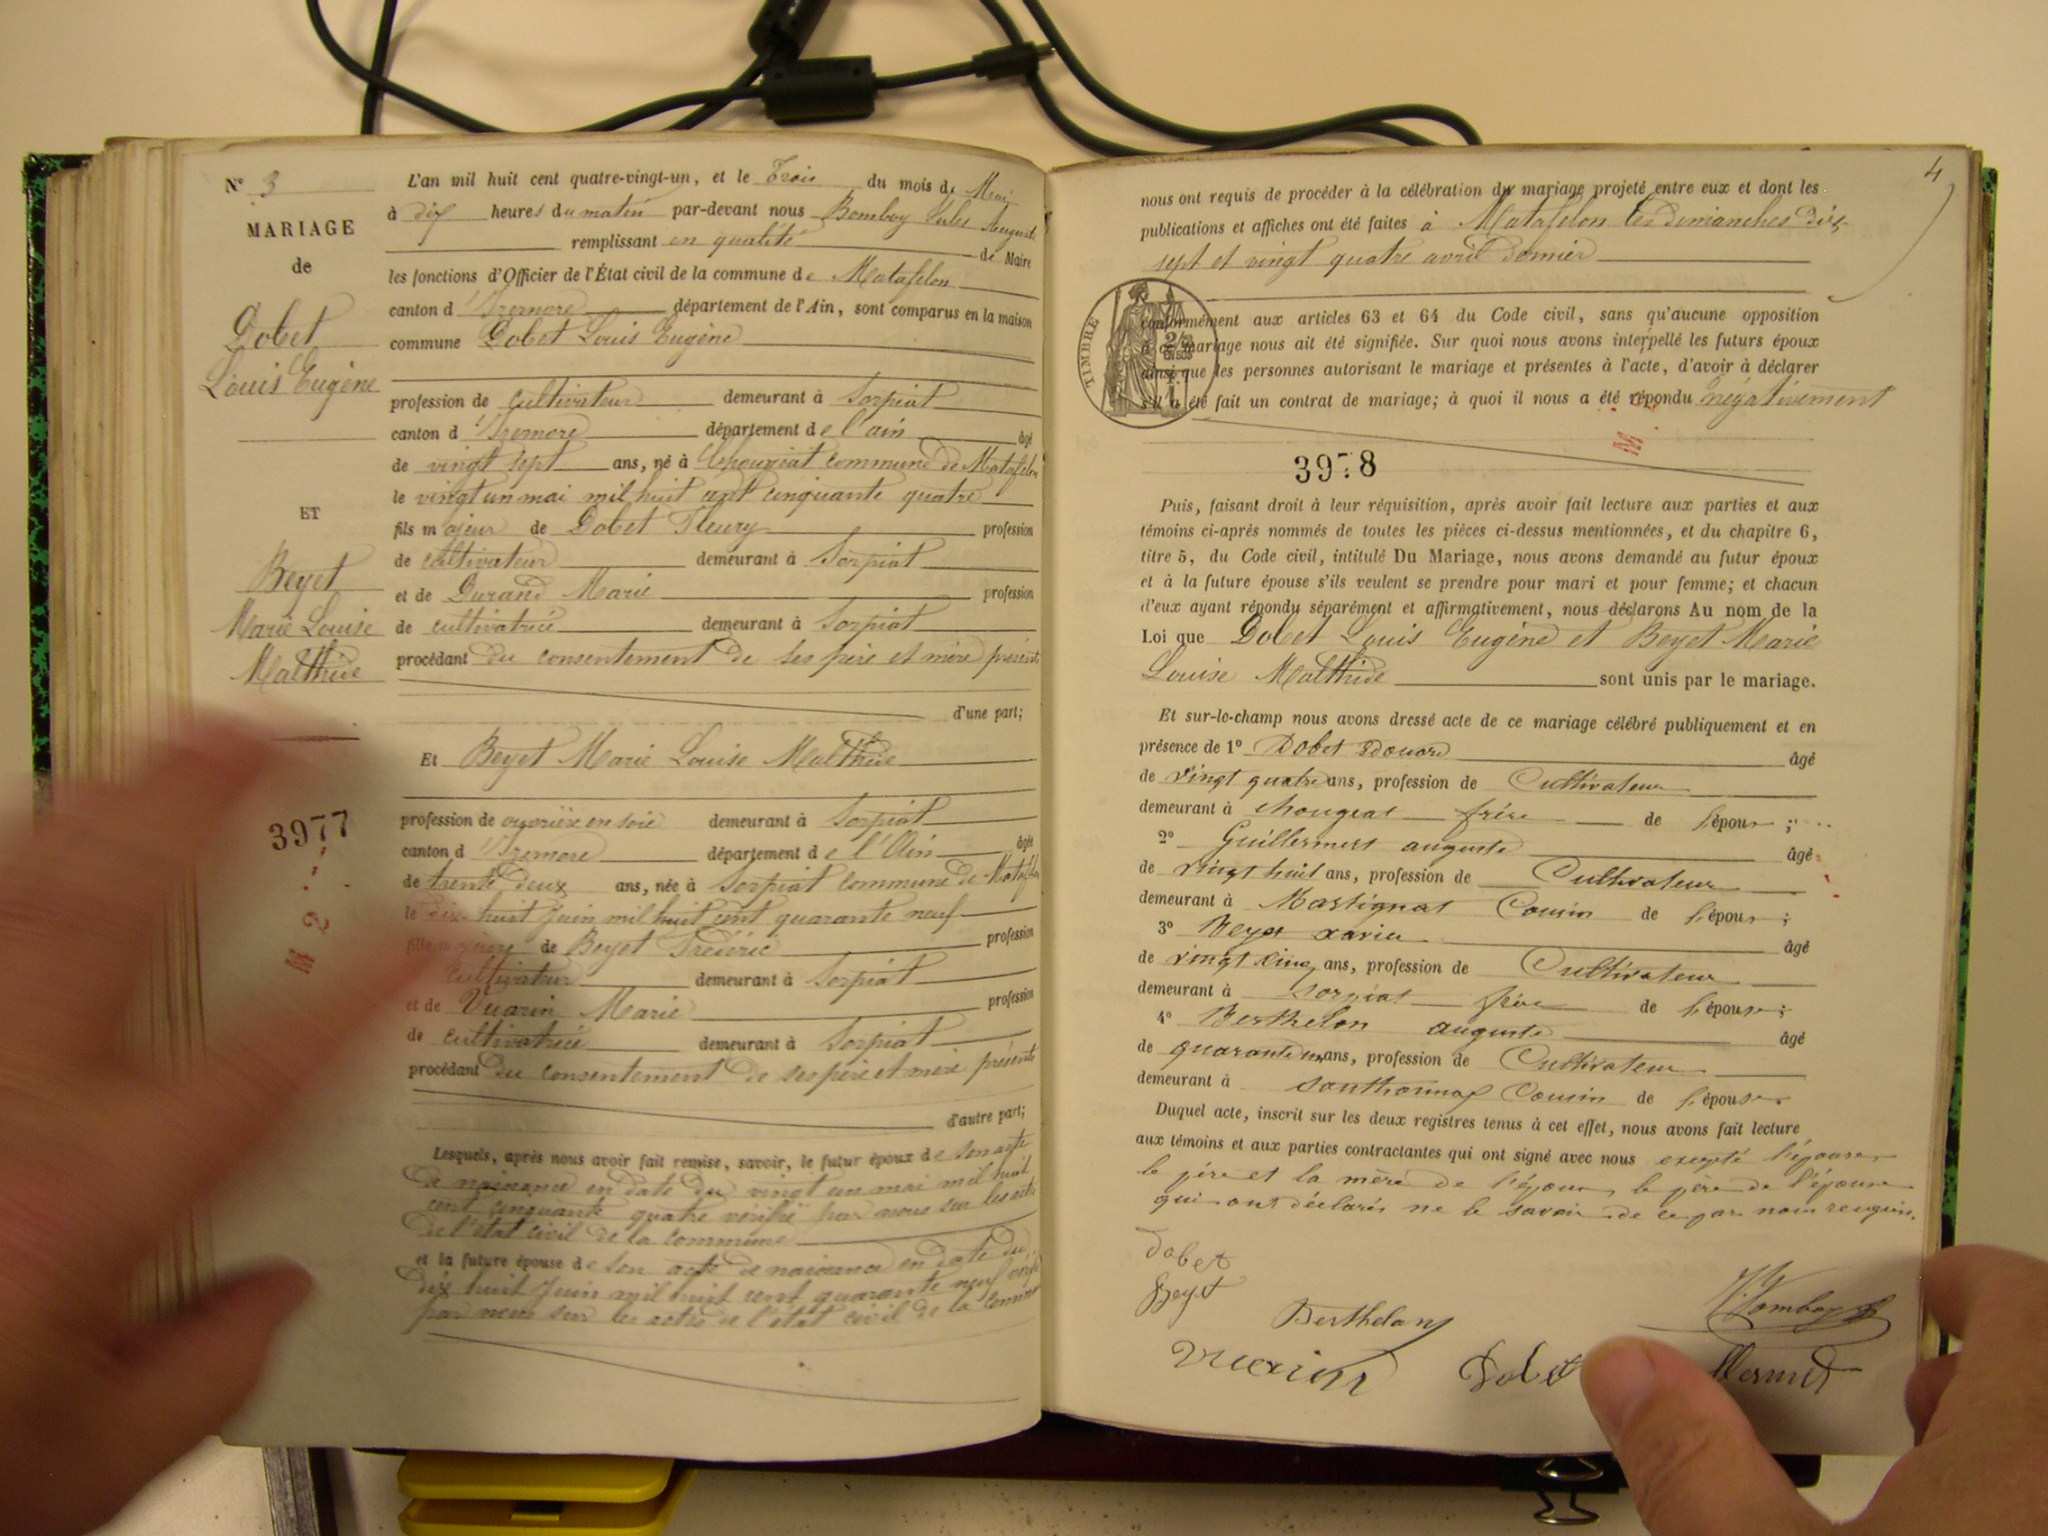 N° 3
MARIAGE
de
Dobet
Louis Eugène
ET
Beyet
Marie Louise
Malthide
3977
L'an mil huit cent quatre-vingt-un, et le Trois du mois de Mai
à dix heures du matin par-devant nous Bomboy Jules August
remplissant en qualité de Maire
les fonctions d'Officier de l'État civil de la commune de Matafelon
canton d'Izernore département de l'Ain, sont comparus en la maison
commune Dobet Louis Eugène
profession de cultivateur demeurant à Sorpiat
canton d'Izernore département de l'ain âgé
de vingt sept ans, né à Chougeat commune de Matafelon
le vingt un mai mil huit cent cinquante quatre
fils majeur de Dobet Fleury profession
de cultivateur demeurant à Sorpiat
et de Durand Marie profession
de cultivatrice demeurant à Sorpiat
procédant du consentement de ses père et mère présent
d'une part;
Et Beyet Marie Louise Malthide
profession de ouvrière en soie demeurant à Sorpiat
canton d'Izernore département de l'Ain âgée
de trente deux ans, née à Sorpiat commune de Mataf
le dix huit Juin mil huit cent quarante neuf
fille majeure de Beyet Frédéric profession
cultivateur demeurant à Sorpiat
et de Vuarin Marie profession
de cultivatrice demeurant à Sorpiat
procédant du consentement de ses père et mère présents
d'autre part;
Lesquels, après nous avoir fait remise, savoir, le futur époux de son acte
de naissance en date du vingt un mai mil huit
cent cinquante quatre vérifié par nous sur les actes
de l'état civil de la commune
et la future épouse de son acte de naissance en date du
dix huit Juin mil huit cent quarante neuf
par nous sur les actes de l'état civil de la commune
4
nous ont requis de procéder à la célébration du mariage projeté entre eux et dont les
publications et affiches ont été faites à Matafelon les dimanches dix
sept et vingt quatre avril dernier
TIMBRE
conformément aux articles 63 et 64 du Code civil, sans qu'aucune opposition
à ce mariage nous ait été signifiée. Sur quoi nous avons interpellé les futurs époux
ainsi que les personnes autorisant le mariage et présentes à l'acte, d'avoir à déclarer
s'il a été fait un contrat de mariage; à quoi il nous a été répondu négativement
3978
Puis, faisant droit à leur réquisition, après avoir fait lecture aux parties et aux
témoins ci-après nommés de toutes les pièces ci-dessus mentionnées, et du chapitre 6,
titre 5, du Code civil, intitulé Du Mariage, nous avons demandé au futur époux
et à la future épouse s'ils veulent se prendre pour mari et pour femme; et chacun
d'eux ayant répondu séparément et affirmativement, nous déclarons Au nom de la
Loi que Dobet Louis Eugène et Beyet Marie
Louise Malthide sont unis par le mariage.
Et sur-le-champ nous avons dressé acte de ce mariage célébré publiquement et en
présence de 1° Dobet Edouard âgé
de vingt quatre ans, profession de Cultivateur
demeurant à chougeat frère de l'époux;
2° Guillermert auguste âgé
de vingt huit ans, profession de Cultivateur
demeurant à Martignat Cousin de l'époux;
3° Beyet xavier âgé
de vingt cinq ans, profession de Cultivateur
demeurant à sorpiat frère de l'épouse;
4° Berthelon auguste âgé
de quarante un ans, profession de Cultivateur
demeurant à sonthonnax Cousin de l'épouse
Duquel acte, inscrit sur les deux registres tenus à cet effet, nous avons fait lecture
aux témoins et aux parties contractantes qui ont signé avec nous excepté l'épouse
le père et la mère de l'époux, le père de l'épouse
qui ont déclaré ne le savoir de ce par nous requis.
Dobet
Beyet
Berthelon
J. Bomboy
Vuarin
Dobet
Mermet